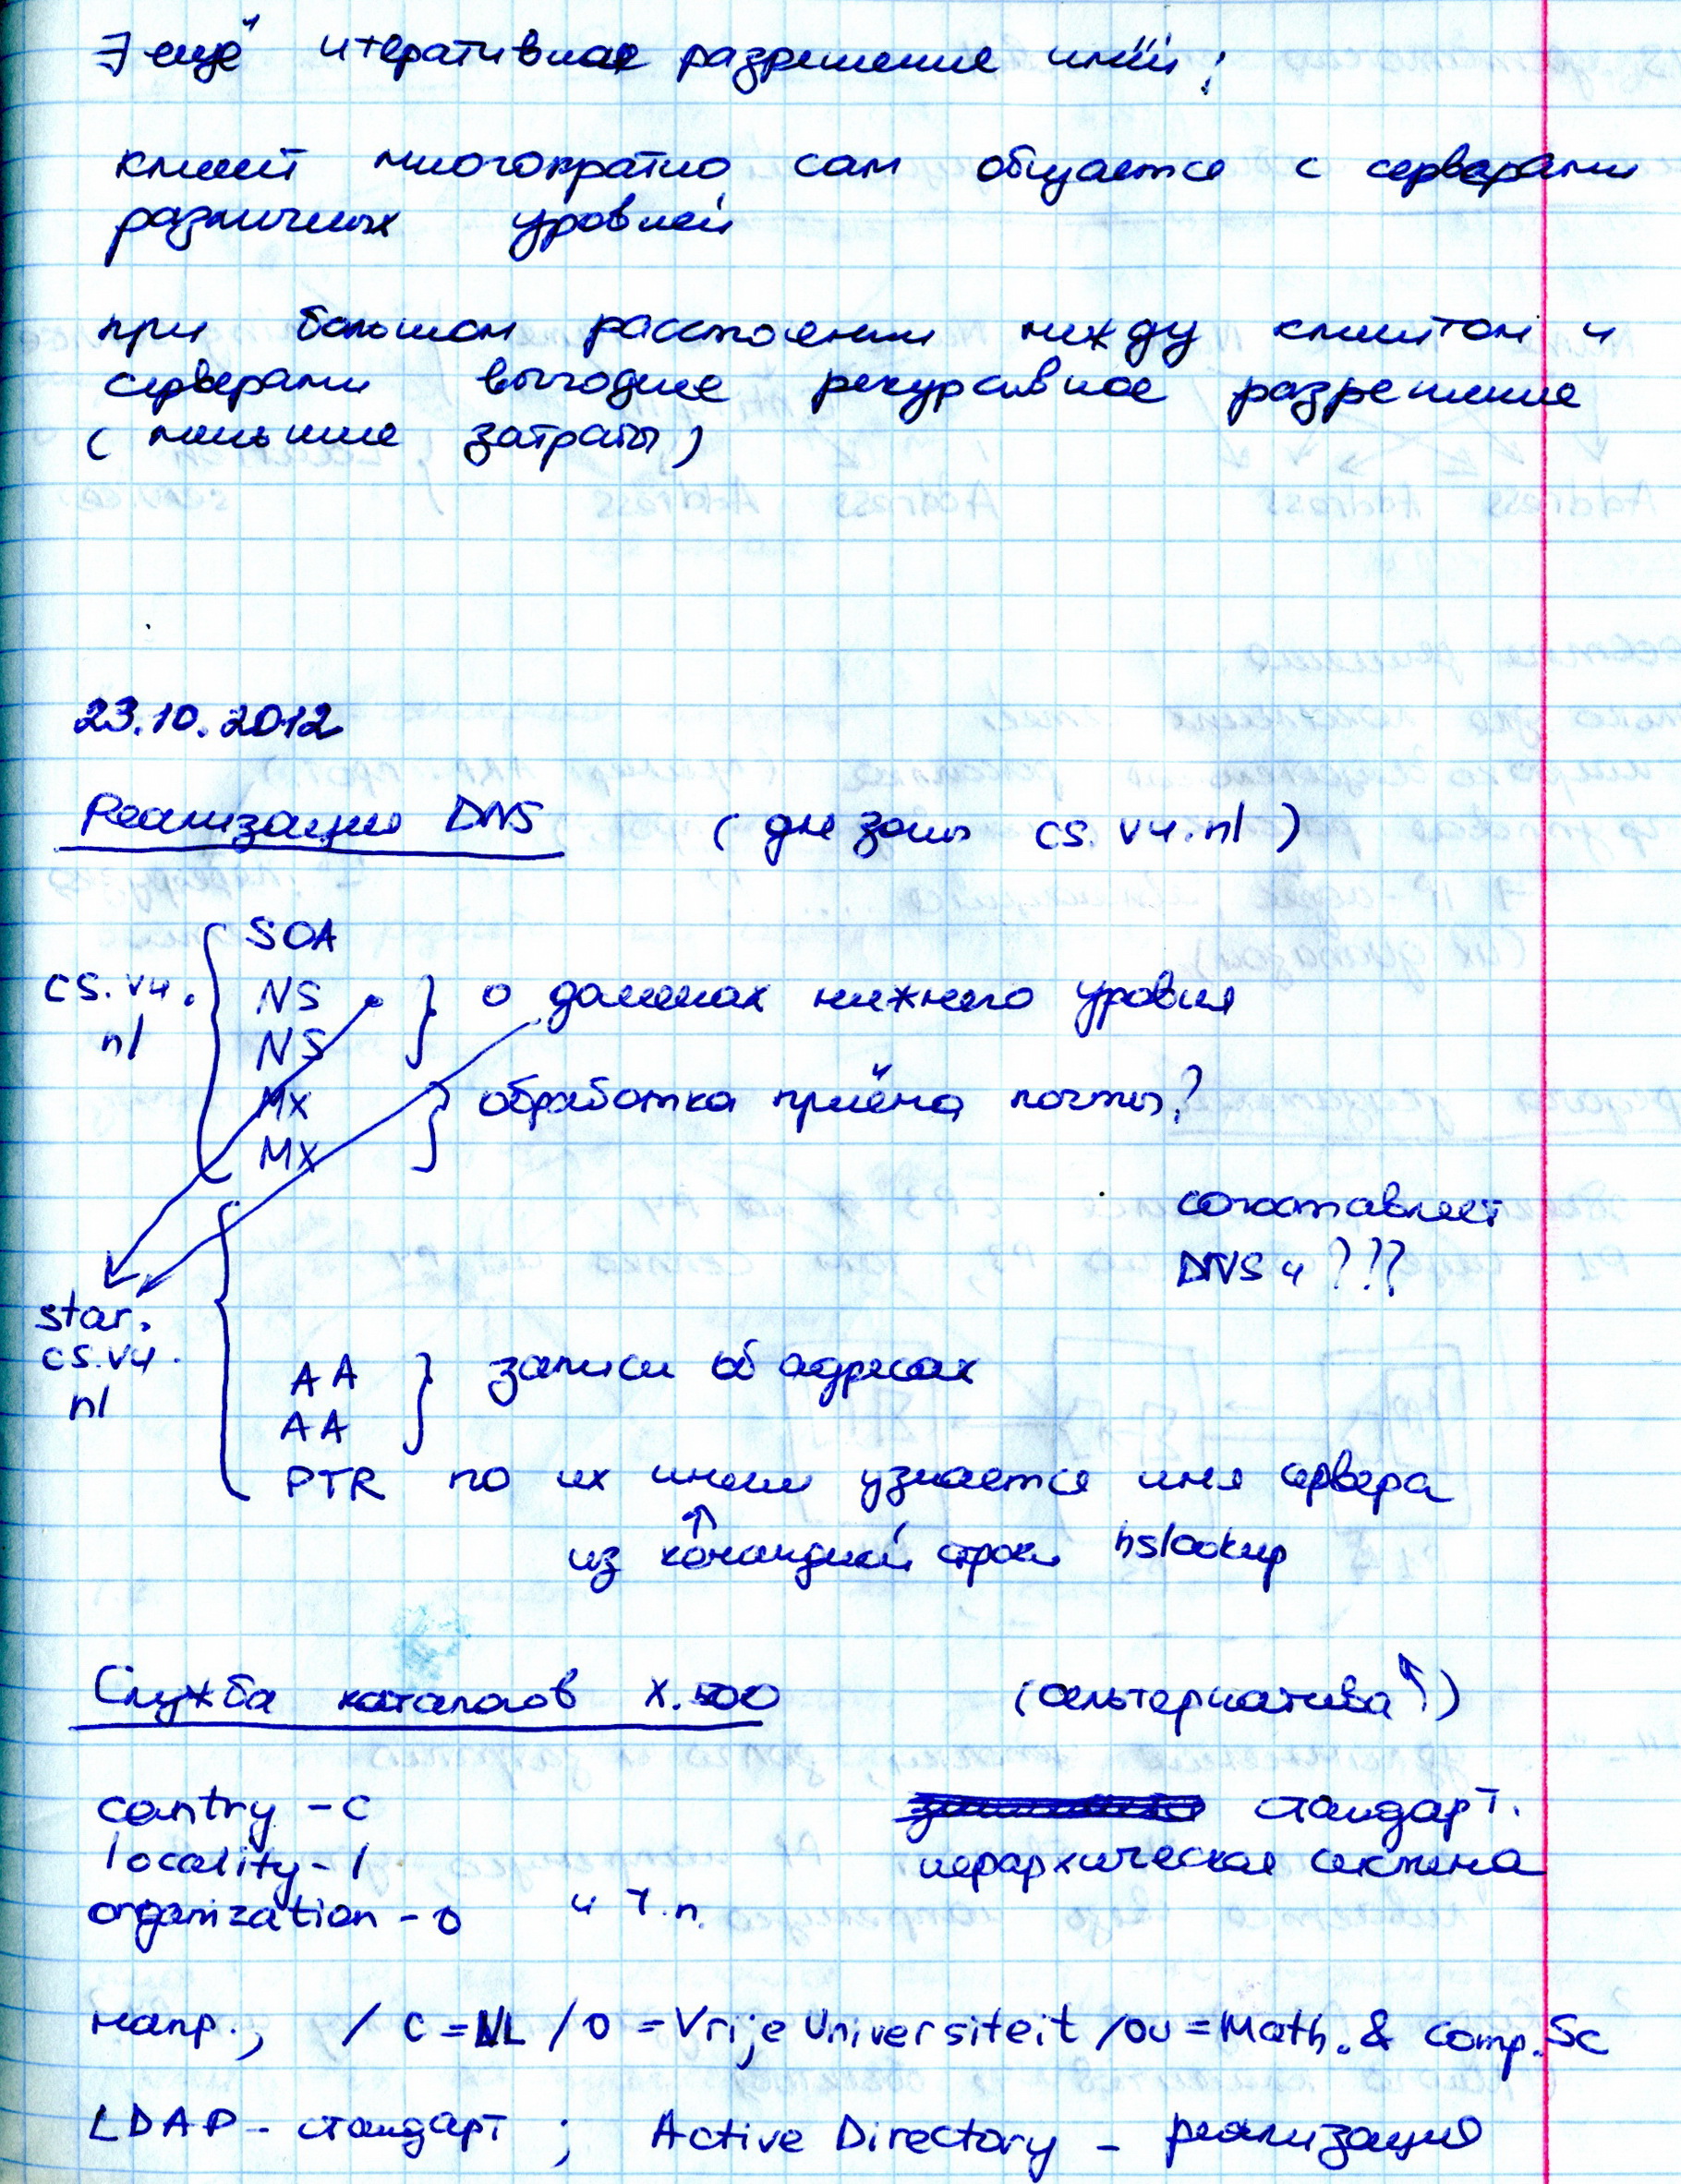 ∃ ещё итеративное разрешение имён:
клиент многократно сам общается с серверами
различных уровней
при большом расстоянии между клиентом и
серверами выгоднее рекурсивное разрешение
(меньшие затраты)
23.10.2012
Реализация DNS (для зоны cs.vu.nl)
cs.vu.
nl
SOA
NS
NS
} о доменах нижнего уровня
MX
MX
} обработка приёма почты?
сопоставляет
DNS и ???
star.
cs.vu.
nl
AA
AA
} записи об адресах
PTR по их имени узнаётся имя сервера
↑
из командной строки nslookup
Служба каталогов X.500 (альтернатива ↑)
country - c
стандарт.
locality - l
иерархическая система
organization - o и т.п.
напр., / C = NL / O = Vrije Universiteit / OU = Math. & Comp. Sc
LDAP - стандарт ; Active Directory - реализация